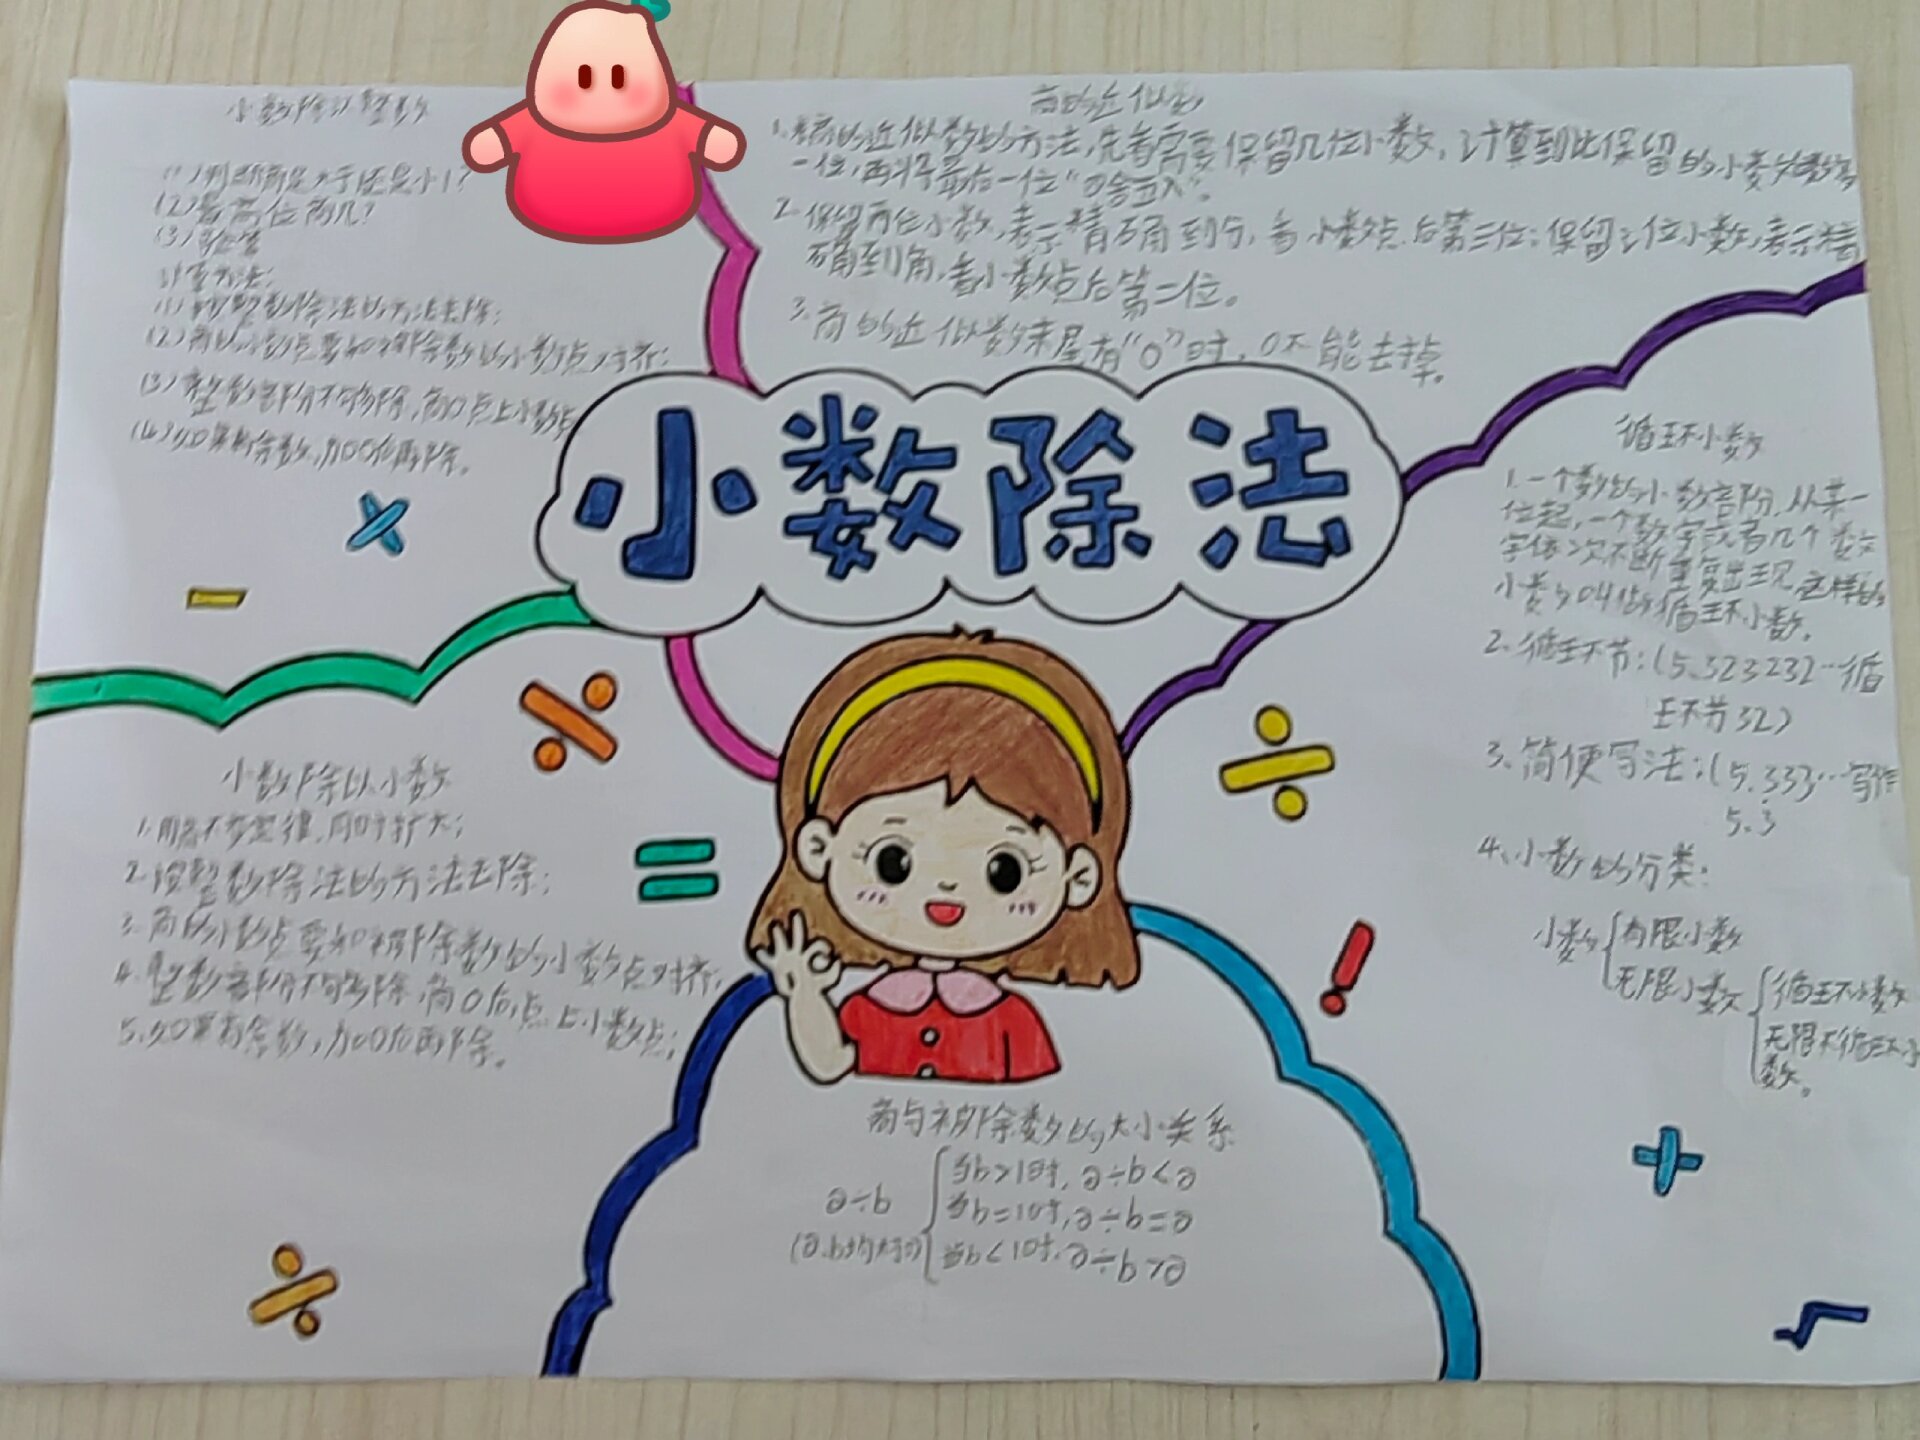 小数除法
小数除以整数
(1)判断商是大于还是小1？
(2)最高位商几？
(3)验算
计算方法：
(1)按整数除法的方法去除；
(2)商的小数点要和被除数的小数点对齐；
(3)整数部分不够除，商0点上小数点
(4)如果有余数，加0后再除。
商的近似数
1.求商的近似数的方法，先看需要保留几位小数，计算到比保留的小数数多
一位，再将最后一位“四舍五入”。
2.保留两位小数，表示精确到分，看小数点后第三位；保留一位小数，表示精
确到角，看小数点后第二位。
3.商的近似数末尾有“0”时，0不能去掉。
循环小数
1.一个数的小数部分，从某一
位起，一个数字或者几个数
字依次不断重复出现，这样的
小数叫做循环小数。
2.循环节：(5.32323232…循
环节32)
3.简便写法：(5.333…写作
5.3̇
4.小数的分类：
小数 有限小数
无限小数 循环小数
无限不循环小
数。
小数除以小数
1.用商不变规律，同时扩大；
2.按整数除法的方法去除；
3.商的小数点要和被除数的小数点对齐；
4.整数部分不够除，商0后，点上小数点；
5.如果有余数，加0后再除。
商与被除数的大小关系
当b>1时，a÷b<a
a÷b 当b=1时，a÷b=a
(a.b均大于0) 当b<1时，a÷b>a